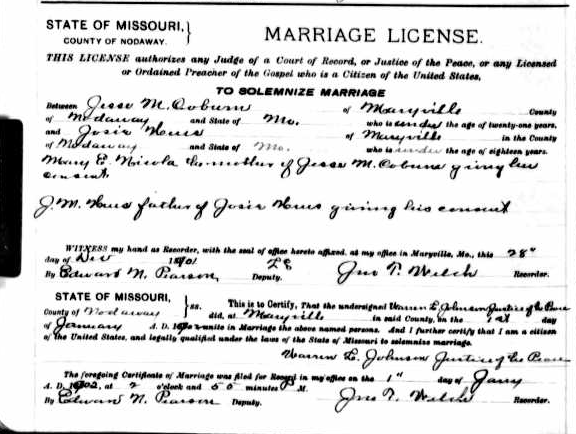 STATE OF MISSOURI, }
COUNTY OF NODAWAY.
MARRIAGE LICENSE.
THIS LICENSE authorizes any Judge of a Court of Record, or Justice of the Peace, or any Licensed
or Ordained Preacher of the Gospel who is a Citizen of the United States,
TO SOLEMNIZE MARRIAGE
Between Jesse M. Coburn of Maryville County
of Nodaway and State of Mo. who is under the age of twenty-one years,
and Josie of Maryville in the County
of Nodaway and State of Mo. who is under the age of eighteen years.
Mary E. Nicola the mother of Jesse M. Coburn giving her
consent
J. M. father of Josie giving his consent
WITNESS my hand as Recorder, with the seal of office hereto affixed, at my office in Maryville, Mo., this 28"
day of Dec 1901.
By Edward N. Pearson, Deputy. Jno T. Welch Recorder.
STATE OF MISSOURI, } ss.
County of Nodaway
This is to Certify, That the undersigned Warren L. Johnson Justice of the Peace
did, at Maryville in said County, on the 1st day
of January A. D. unite in Marriage the above named persons. And I further certify that I am a citizen
of the United States, and legally qualified under the laws of the State of Missouri to solemnize marriage.
Warren L. Johnson Justice of the Peace
The foregoing Certificate of Marriage was filed for Record in my office on the 1" day of Jany
A. D. 1902, at 2 o'clock and 50 minutes P. M.
By Edward N. Pearson Deputy. Jno T. Welch Recorder.